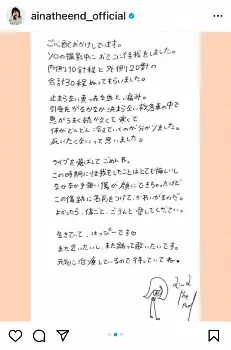 ainatheend_official
ご心配おかけしてます。
ソロの撮影中に おでこに怪我をしました。
内側10針程と外側20針の
合計30程 ぬってもらいました。
止まらない真っ赤な血と、痛み。
引き先がなかなか決まらない救急車の中で
息がうまく続かなくて 寒くて
体がどんどん冷えていくのが分かりました。
死にたくないって思いました。
ライブを飛ばして ごめんね。
この時期に怪我をしたことはとても悔しいし
なかなか手強い傷が 顔にできちゃったけど
この傷跡に名前をつけて、かわいがるのだ。
よかったら、傷ごと、ごらんと 愛してください。
生きていて、はっぴーです
また会いたいし、また踊って歌いたいです。
元気に治療しているので待っていてね。
aina
the
end